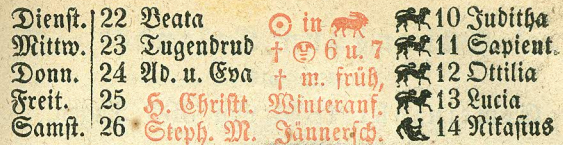 Dienst. 22 Beata ☉ in 10 Juditha
Mittw. 23 Tugendrud † 6 u. 7 11 Sapient.
Donn. 24 Ad. u. Eva † m. früh, 12 Ottilia
Freit. 25 H. Christt. Winteranf. 13 Lucia
Samst. 26 Steph. M. Jännersch. 14 Nikasius